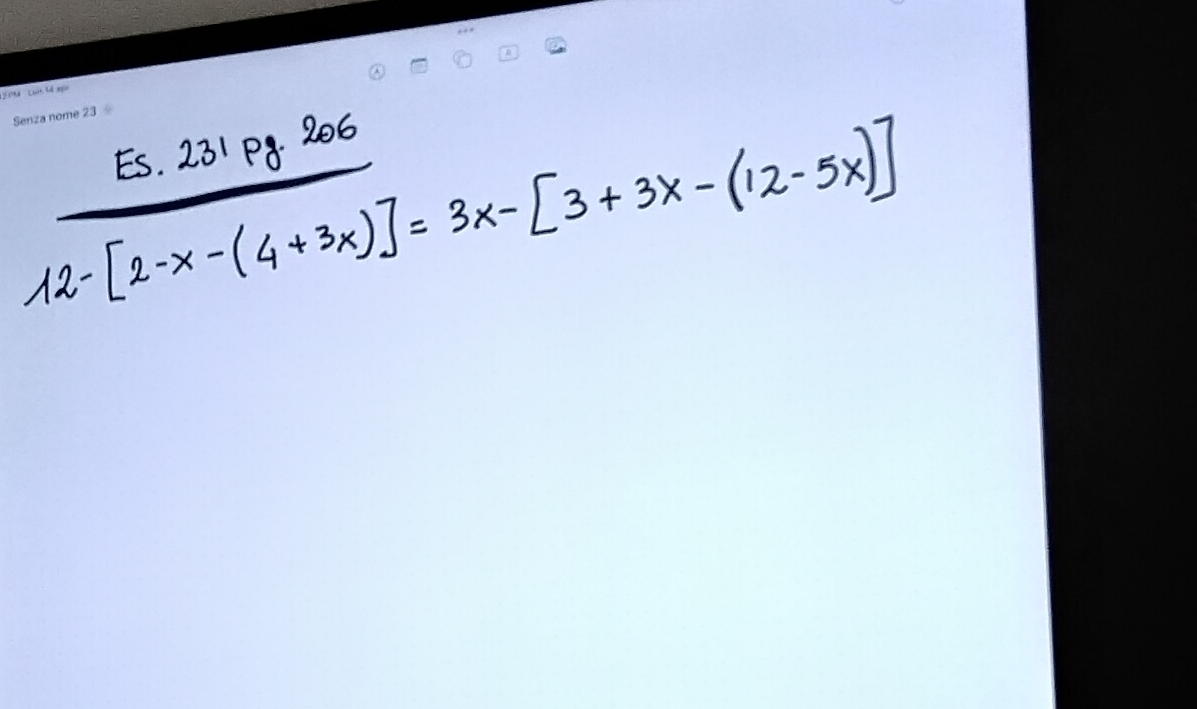 Lun 14 apr
Senza nome 23
Es. 231 pg. 206
12-[2-x-(4+3x)]= 3x-[3+3x-(12-5x)]